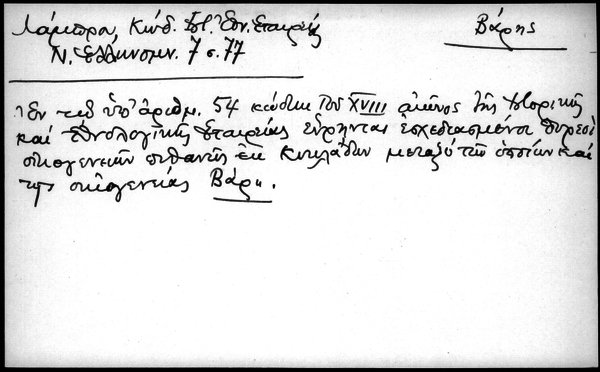 Λάμπρου, Κώδ. Ἱστ. Ἐθν. Ἑταιρείας
Βάρης
Ν. Ἑλληνομν. 7 σ. 77
Ἐν τῷ ὑπ' ἀριθμ. 54 κώδικι τοῦ XVIII αἰῶνος τῆς Ἱστορικῆς
καὶ Ἐθνολογικῆς Ἑταιρείας εὕρηνται ἐσχεδιασμένοι θυρεοὶ
οἰκογενειῶν πιθανῶς ἐκ Κυκλάδων μεταξὺ τῶν ὁποίων καὶ
τῆς οἰκογενείας Βάρη.